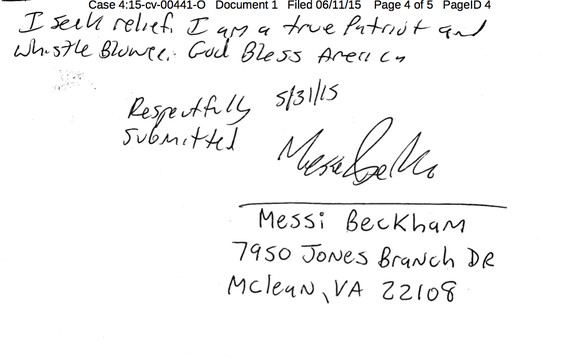 Case 4:15-cv-00441-O Document 1 Filed 06/11/15 Page 4 of 5 PageID 4
I seek relief. I am a true Patriot and
Whistle Blower. God Bless America
Respectfully 5/31/15
submitted
Messi Beckham
7950 Jones Branch DR
Mclean, VA 22108